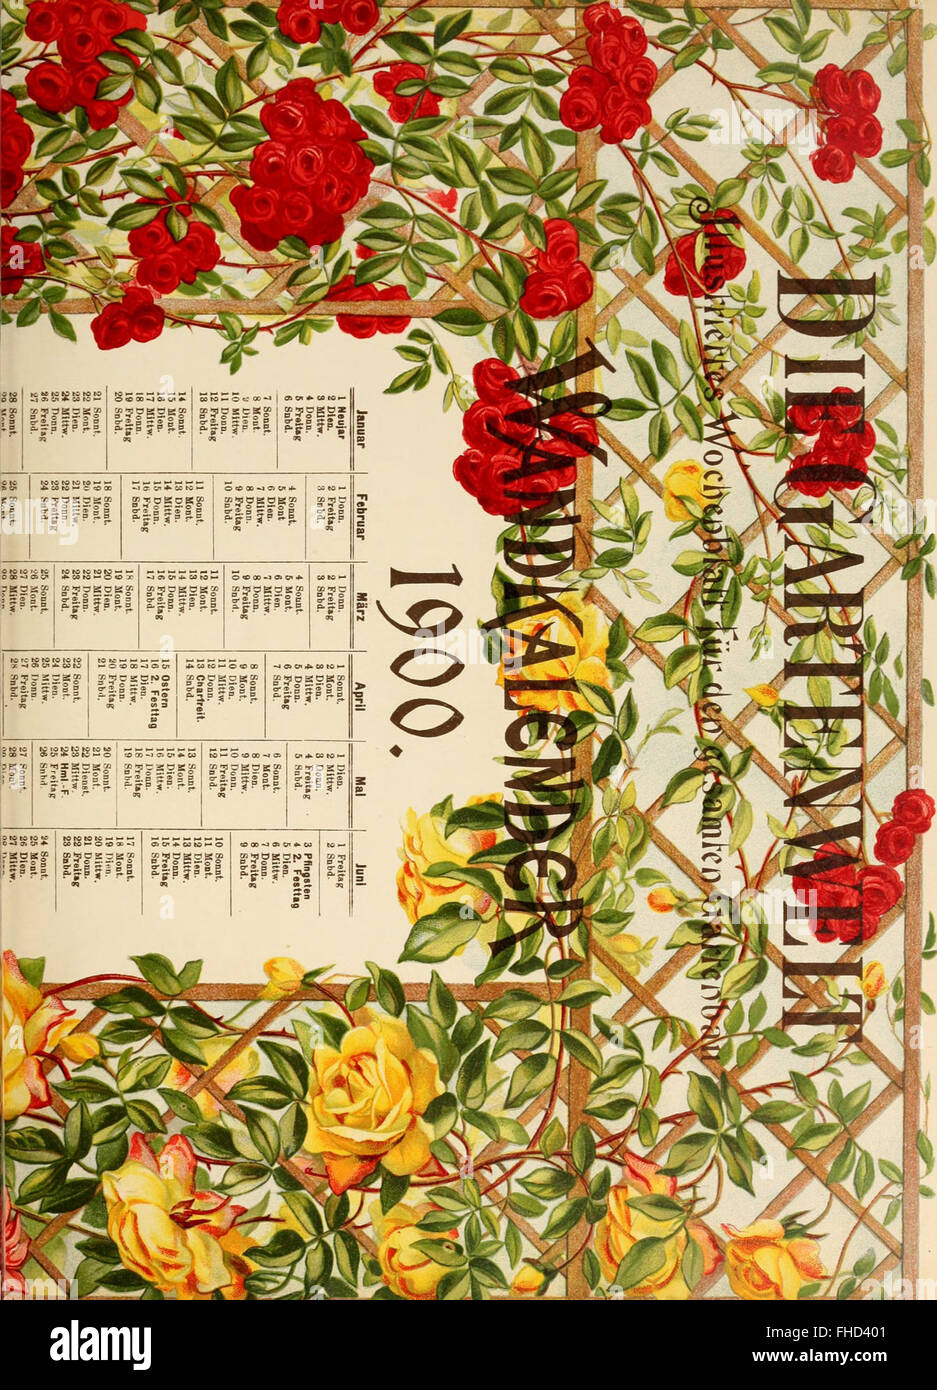 DIE GARTENWELT
Illustriertes Wochenblatt für den gesamten Gartenbau
WANDKALENDER
1900.
Januar
1 Neujar
2 Dien.
3 Mittw.
4 Donn.
5 Freitag
6 Snbd.
7 Sonnt.
8 Mont
9 Dien.
10 Mittw.
11 Donn.
12 Freitag
13 Snbd.
14 Sonnt.
15 Mont.
16 Dien.
17 Mittw.
18 Donn.
19 Freitag
20 Snbd.
21 Sonnt.
22 Mont.
23 Dien.
24 Mittw.
25 Donn.
26 Freitag
27 Snbd.
28 Sonnt.
29 Mont.
Februar
1 Donn.
2 Freitag
3 Snbd.
4 Sonnt.
5 Mont
6 Dien.
7 Mittw.
8 Donn.
9 Freitag
10 Snbd.
11 Sonnt.
12 Mont.
13 Dien.
14 Mittw.
15 Donn.
16 Freitag
17 Snbd.
18 Sonnt.
19 Mont.
20 Dien.
21 Mittw.
22 Donn.
23 Freitag
24 Snbd.
25 Sonnt.
26 Mont.
März
1 Donn.
2 Freitag
3 Snbd.
4 Sonnt.
5 Mont.
6 Dien.
7 Mittw.
8 Donn.
9 Freitag
10 Snbd.
11 Sonnt.
12 Mont.
13 Dien.
14 Mittw.
15 Donn.
16 Freitag
17 Snbd.
18 Sonnt.
19 Mont.
20 Dien.
21 Mittw.
22 Donn.
23 Freitag
24 Snbd.
25 Sonnt.
26 Mont.
27 Dien.
28 Mittw.
29 Donn.
April
1 Sonnt.
2 Mont.
3 Dien.
4 Mittw.
5 Donn.
6 Freitag
7 Snbd.
8 Sonnt.
9 Mont.
10 Dien.
11 Mittw.
12 Donn.
13 Charfreit.
14 Snbd.
15 Ostern
16 2. Festtag
17 Dien.
18 Mittw.
19 Donn.
20 Freitag
21 Snbd.
22 Sonnt.
23 Mont.
24 Dien.
25 Mittw.
26 Donn.
27 Freitag
28 Snbd.
Mai
1 Dien.
2 Mittw.
3 Donn.
4 Freitag
5 Snbd.
6 Sonnt.
7 Mont.
8 Dien.
9 Mittw.
10 Donn.
11 Freitag
12 Snbd.
13 Sonnt.
14 Mont.
15 Dien.
16 Mittw.
17 Donn.
18 Freitag
19 Snbd.
20 Sonnt.
21 Mont.
22 Dienst.
23 Mittw.
24 Hml.-F.
25 Freitag
26 Snbd.
27 Sonnt.
28 Mont.
29 Dien.
Juni
1 Freitag
2 Snbd.
3 Pfingsten
4 2. Festtag
5 Dien.
6 Mittw.
7 Donn.
8 Freitag
9 Snbd.
10 Sonnt.
11 Mont.
12 Dien.
13 Mittw.
14 Donn.
15 Freitag
16 Snbd.
17 Sonnt.
18 Mont
19 Dien.
20 Mittw.
21 Donn.
22 Freitag
23 Snbd.
24 Sonnt.
25 Mont.
26 Dien.
27 Mittw.
alamy
Image ID: FHD401
www.alamy.com